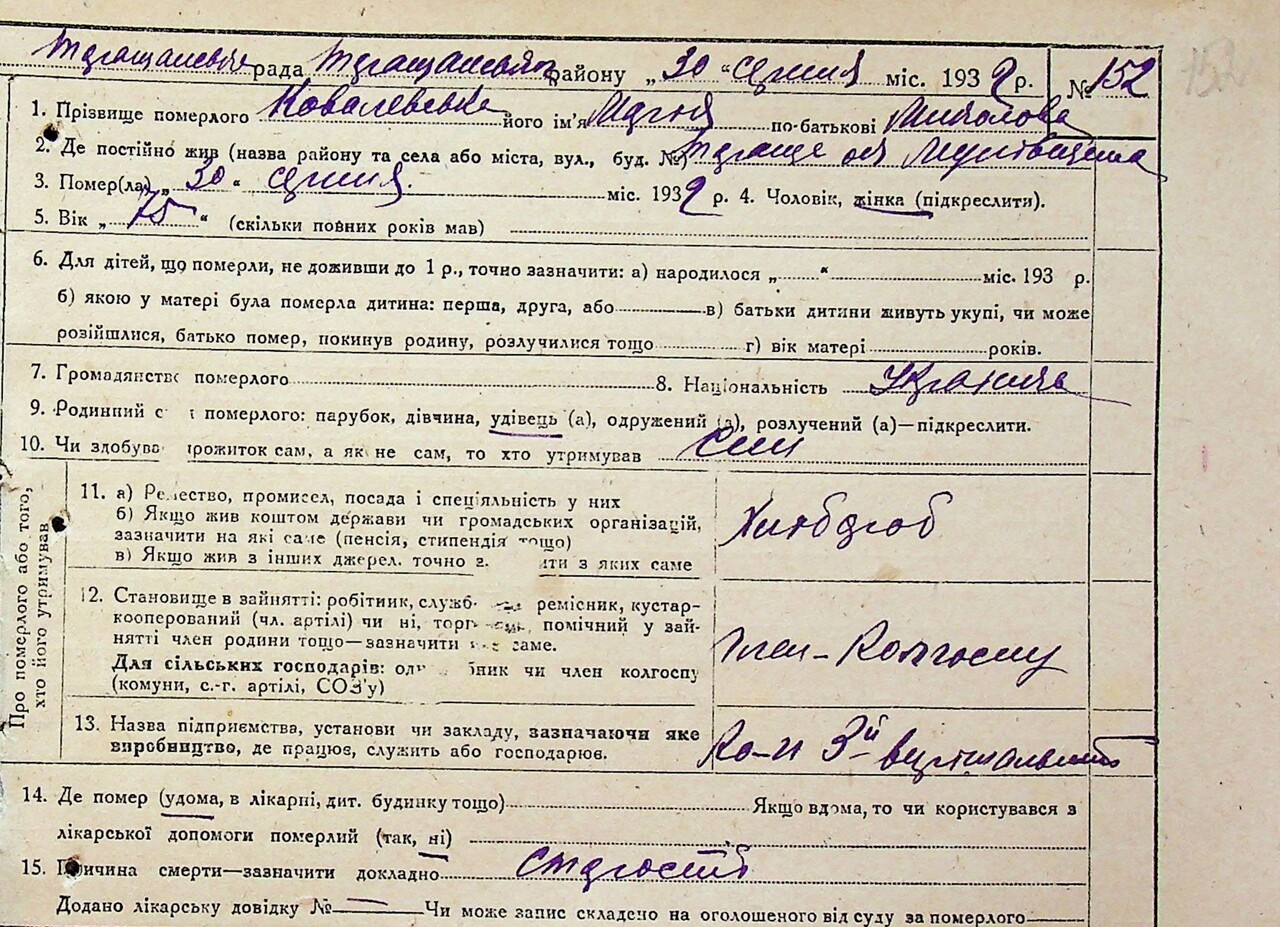 Таращанська рада Таращанського району „30“ серпня міс. 1932 р. № 152
1. Прізвище померлого Ковалевська його ім'я Марія по-батькові Миколова
2. Де постійно жив (назва району та села або міста, вул., буд. №) Тараща
3. Помер(ла) „30“ серпня. міс. 1932 р. 4. Чоловік, жінка (підкреслити).
5. Вік „75“ (скільки повних років мав)
6. Для дітей, що померли, не доживши до 1 р., точно зазначити: а) народилося „ “ міс. 193 р.
б) якою у матері була померла дитина: перша, друга, або в) батьки дитини живуть укупі, чи може
розійшлися, батько помер, покинув родину, розлучилися тощо г) вік матері років.
7. Громадянство померлого 8. Національність Українка
9. Родинний с померлого: парубок, дівчина, удівець (а), одружений (а), розлучений (а)—підкреслити.
10. Чи здобував прожиток сам, а як не сам, то хто утримував син
Про померлого або того,
хто його утримував
11. а) Ремество, промисел, посада і спеціяльність у них
б) Якщо жив коштом держави чи громадських організацій,
зазначити на які саме (пенсія, стипендія тощо)
в) Якщо жив з інших джерел, точно з яких саме
Хлібороб
12. Становище в зайнятті: робітник, служб ремісник, кустар-
кооперований (чл. артілі) чи ні, торг помічний у зай-
нятті член родини тощо—зазначити саме.
Для сільських господарів: одноосібник чи член колгоспу
(комуни, с.-г. артілі, СОЗ'у)
Член-Колгоспу
13. Назва підприємства, установи чи закладу, зазначаючи яке
виробництво, де працює, служить або господарює.
3й вирішальний
14. Де помер (удома, в лікарні, дит. будинку тощо) Якщо вдома, то чи користувався з
лікарської допомоги померлий (так, ні)
15. Причина смерти—зазначити докладно старость
Додано лікарську довідку № — Чи може запис складено на оголошеного від суду за померлого